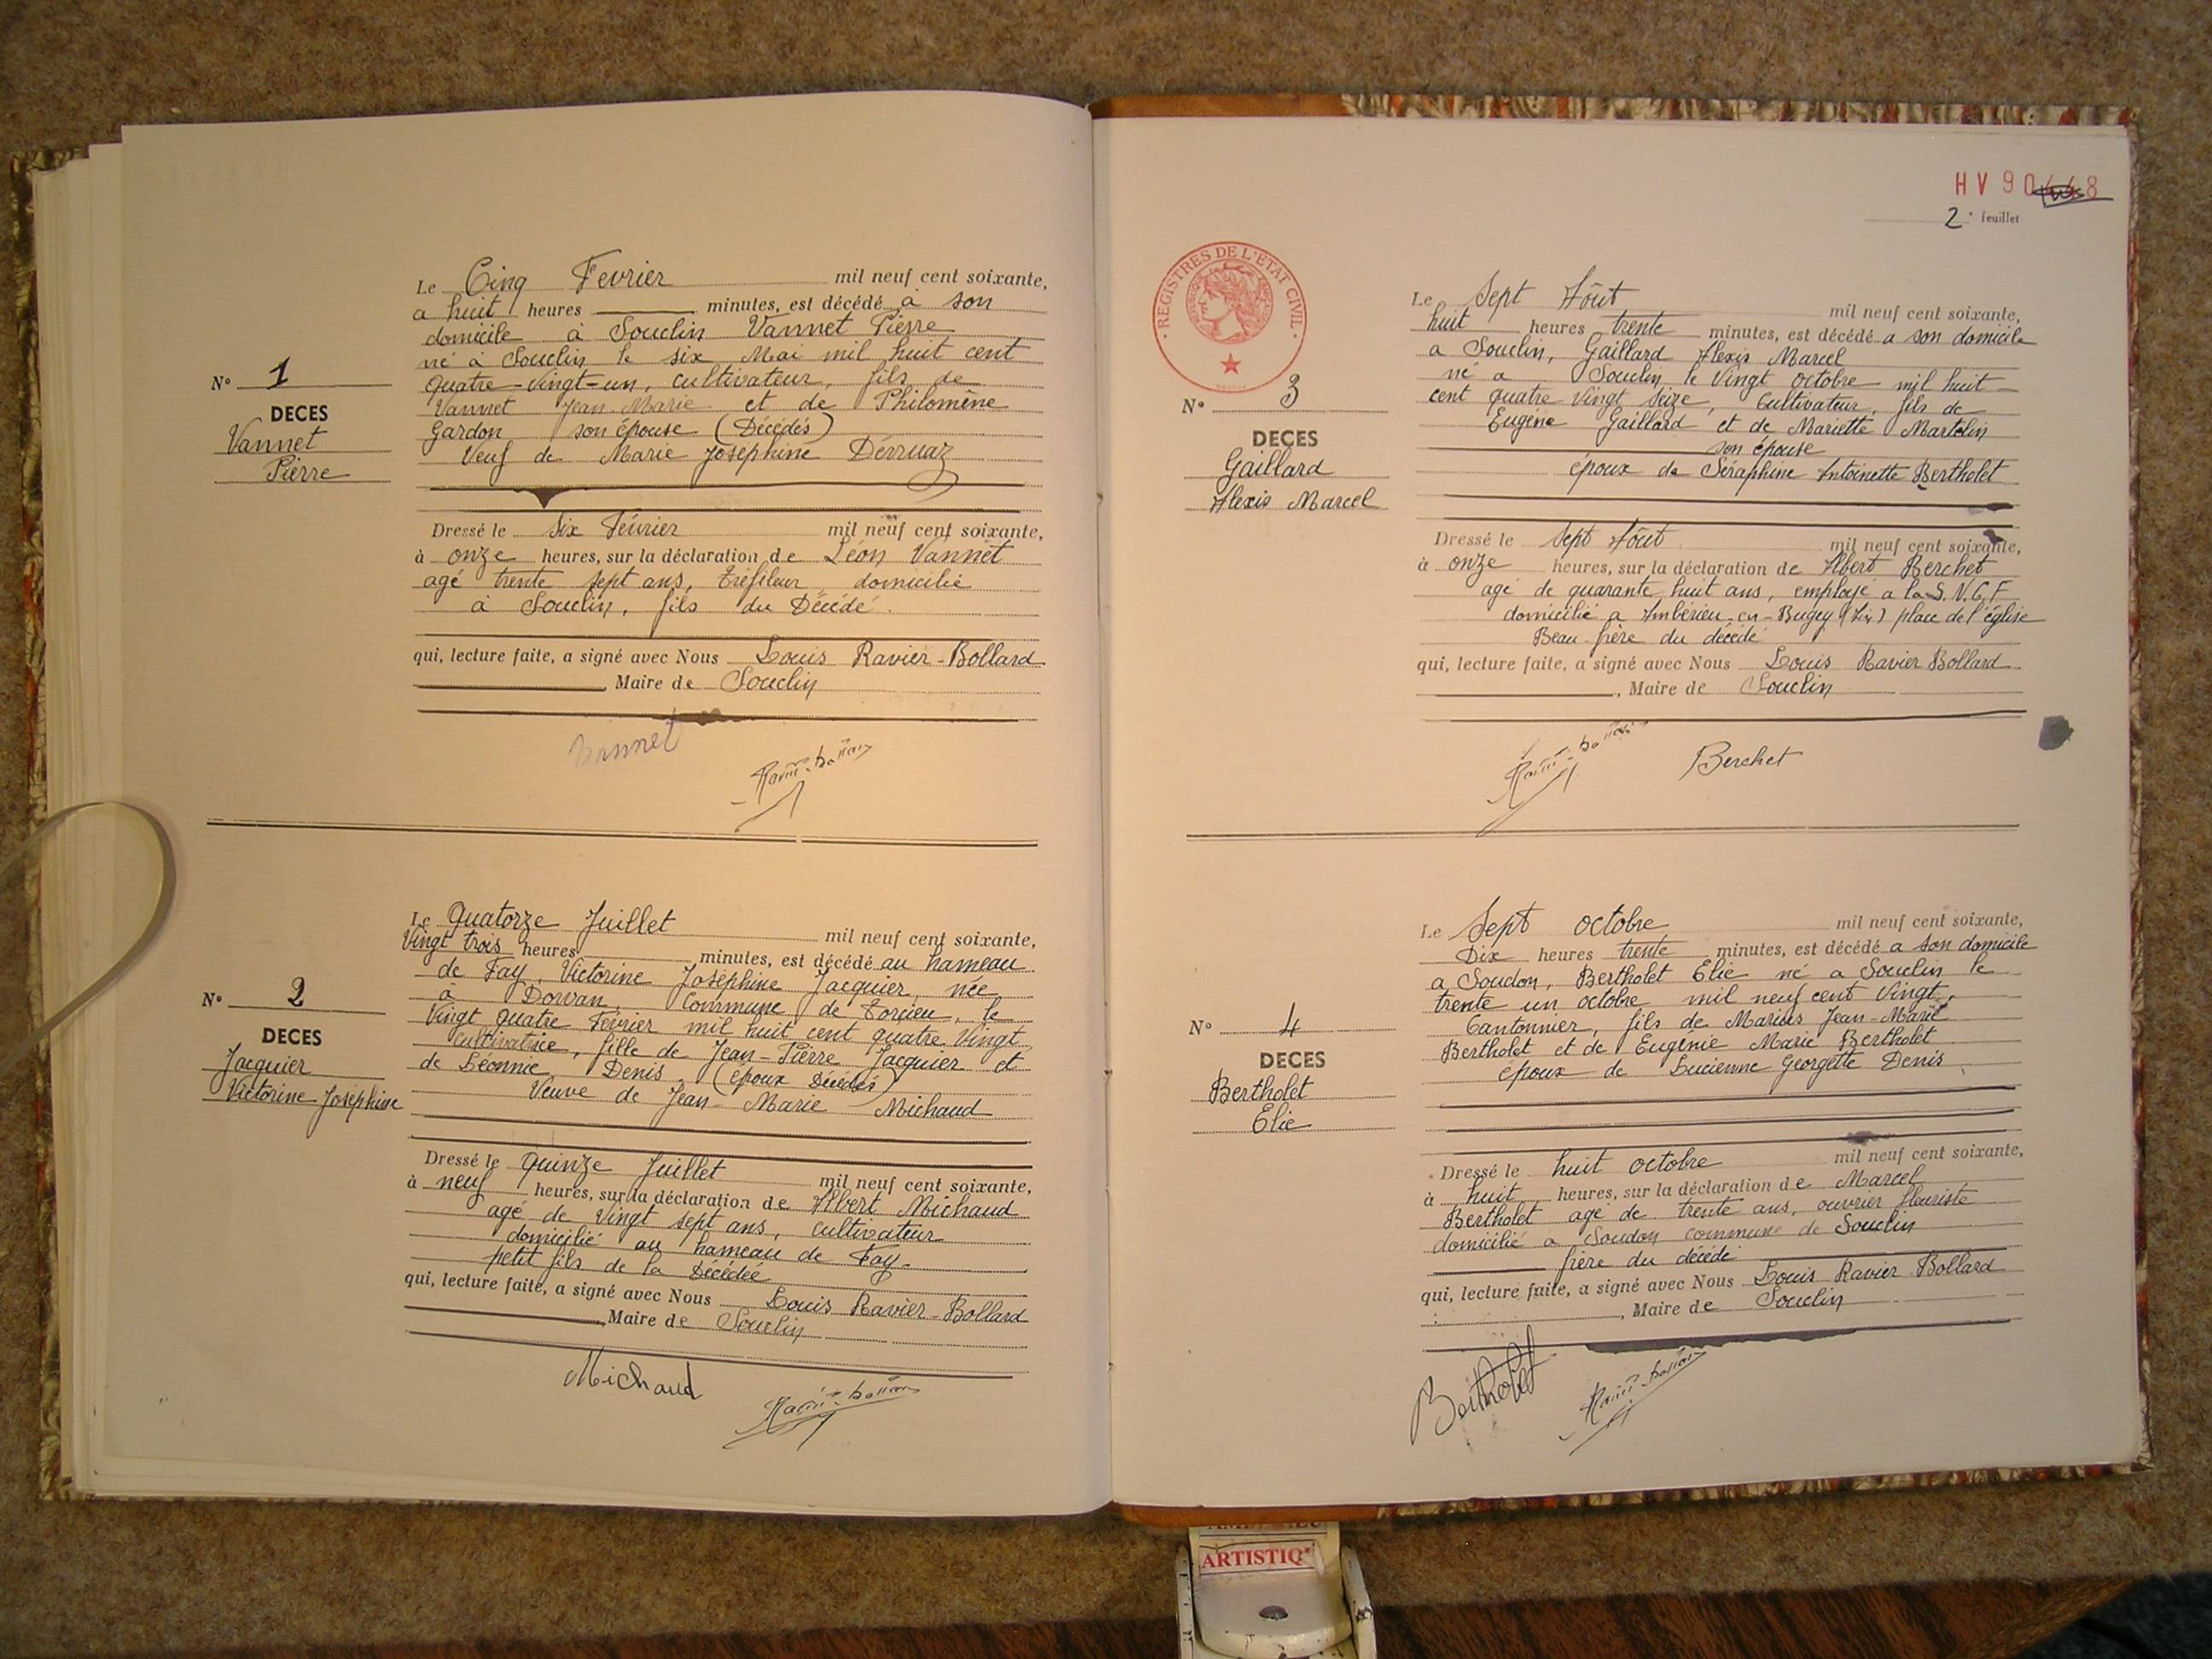 Le Cinq Fevrier mil neuf cent soixante,
a huit heures minutes, est décédé à son
domicile à Souclin Vannet Pierre
né à Souclin le six Mai mil huit cent
quatre-vingt-un, cultivateur, fils de
Vannet Jean-Marie et de Philomène
Gardon son épouse (Décédés)
Veuf de Marie Joséphine Derruaz
N° 1
DECES
Vannet
Pierre
Dressé le six Février mil neuf cent soixante,
à onze heures, sur la déclaration de Léon Vannet
agé trente sept ans, tréfileur domicilié
à Souclin, fils du Décédé.
qui, lecture faite, a signé avec Nous Louis Ravier-Bollard
Maire de Souclin
Vannet
Le Quatorze Juillet mil neuf cent soixante,
Vingt trois heures minutes, est décédé au hameau
de Fay, Victorine Joséphine Jacquier, née
à Dorvan, Commune de Torcieu, le
Vingt quatre Février mil huit cent quatre Vingt
cultivatrice, fille de Jean-Pierre Jacquier et
de Léonnie Denis (époux Décédés)
Veuve de Jean-Marie Michaud
N° 2
DECES
Jacquier
Victorine Joséphine
Dressé le Quinze Juillet mil neuf cent soixante,
à neuf heures, sur la déclaration de Albert Michaud
agé de Vingt sept ans, cultivateur
domicilié au hameau de Fay-
petit fils de la Décédée
qui, lecture faite, a signé avec Nous Louis Ravier-Bollard
Maire de Souclin
Michaud
HV 90 8
2e feuillet
REGISTRES DE L'ETAT CIVIL
Le Sept Août mil neuf cent soixante,
huit heures trente minutes, est décédé a son domicile
a Souclin, Gaillard Alexis Marcel
né a Souclin le Vingt octobre mil huit
cent quatre Vingt Seize, Cultivateur, fils de
Eugène Gaillard et de Mariette Martelin
son épouse
époux de Séraphine Antoinette Bertholet
N° 3
DECES
Gaillard
Alexis Marcel
Dressé le Sept Août mil neuf cent soixante,
à onze heures, sur la déclaration de Albert Berchet
agé de quarante huit ans, employé a la S.N.C.F
domicilié a Ambérieu-en-Bugey (Ain) place de l'église
Beau frère du décédé
qui, lecture faite, a signé avec Nous Louis Ravier Bollard
, Maire de Souclin
Berchet
Le Sept octobre mil neuf cent soixante,
Dix heures trente minutes, est décédé a son domicile
a Soudon, Bertholet Elie né a Souclin le
trente un octobre mil neuf cent Vingt,
Cantonnier, fils de Marius Jean-Marie
Bertholet et de Eugénie Marie Bertholet
époux de Lucienne Georgette Denis
N° 4
DECES
Bertholet
Elie
Dressé le huit octobre mil neuf cent soixante,
à huit heures, sur la déclaration de Marcel
Bertholet agé de trente ans, ouvrier fleuriste
domicilié a Soudon commune de Souclin
frère du décédé
qui, lecture faite, a signé avec Nous Louis Ravier Bollard
, Maire de Souclin
Bertholet
ARTISTIQ